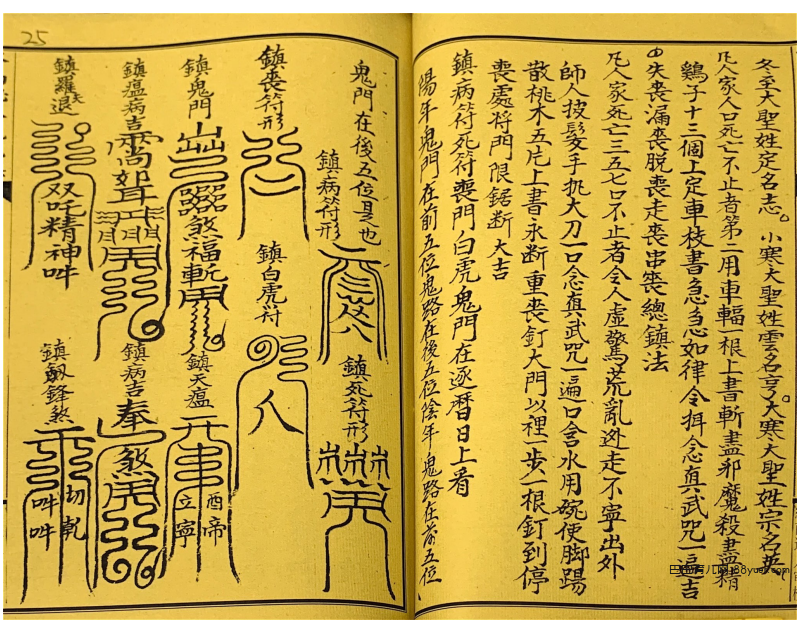 冬至大聖姓定名志。小寒大聖姓雲名亨。大寒大聖姓宗名英
凡人家人口死亡不止者第二用車輻一根上書斬盡邪魔殺盡精
鷄子十三個上定車枝書急急如律令揖念真武咒一遍吉
失喪漏喪脫喪走喪串喪總鎮法
凡人家死亡三五七口不止者令人虛驚荒亂逊走不寧出外
師人披髮手扒大刀一口念真武咒一遍口含水用碗使脚踢
散桃木五片上書永断重喪釘大門以裡一步一根釘到停
喪處將門限鋸断大吉
鎮病符死符喪門白虎鬼門在逐曆日上看
陽年鬼門在前五位鬼路在後五位陰年鬼路在前五位
25
鬼門在後五位是也
鎮病符形
鎮死符形
鎮喪符形
鎮白虎符
鎮鬼門
煞福斬
鎮天瘟
酉帝
立寧
鎮瘟病吉
鎮病吉
奉
煞
鎮羅天退
双吒精神吽
鎮釼鋒煞
切乾
吽吽